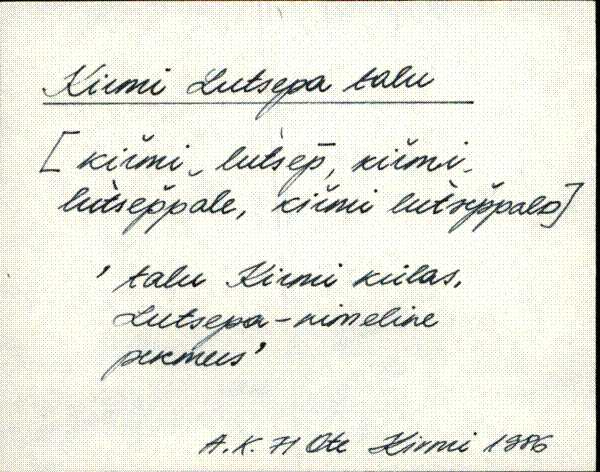 Kirmi Lutsepa talu
[kir̆mi‿lùtsep̄, kir̆mi‿
lùtsep̆pale, kir̆mi lùtsep̆palɒ]
'talu Kirmi külas,
Lutsepa-nimeline
perekond'
A.K. 71 Ote Kirmi 1986